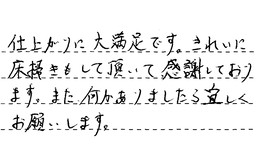 仕上がりに大満足です。きれいに
床掃きもして頂いて感謝しており
ます。また何かありましたら宜しく
お願いします。